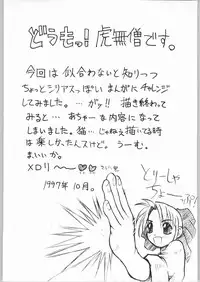 どうもっ!虎無僧です。
今回は似合わないと知りつつ
ちょっとシリアスっぽいまんがにチャレンジ
してみました。…がッ!!描き終わって
みると…あちゃーな内容になって
しまいました。猫…じゃねえ描いてる時
は楽しかったんスけど。うーむ。
まぁいいか。
メロリ〜〜♡♡
1997年10月。
とりーしゃ
ちょーっぷ